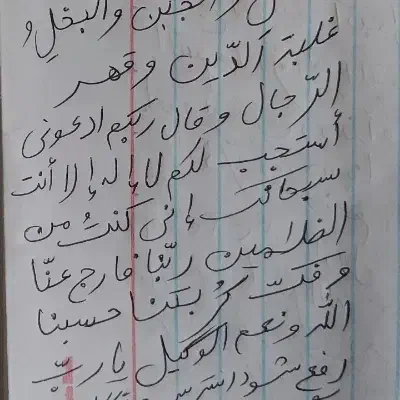 والجبن والبخل و
غلبة الدّين وقهر
الرّجال وقال ربّكم ادعونى
أستجب لكم لا إله إلا أنت
سبحانك إنى كنتُ من
الظلامين ربّنا فارج عنّا
وفكّ كُربتنا حسبنا
الله ونعم الوكيل يا ربّ
رفع